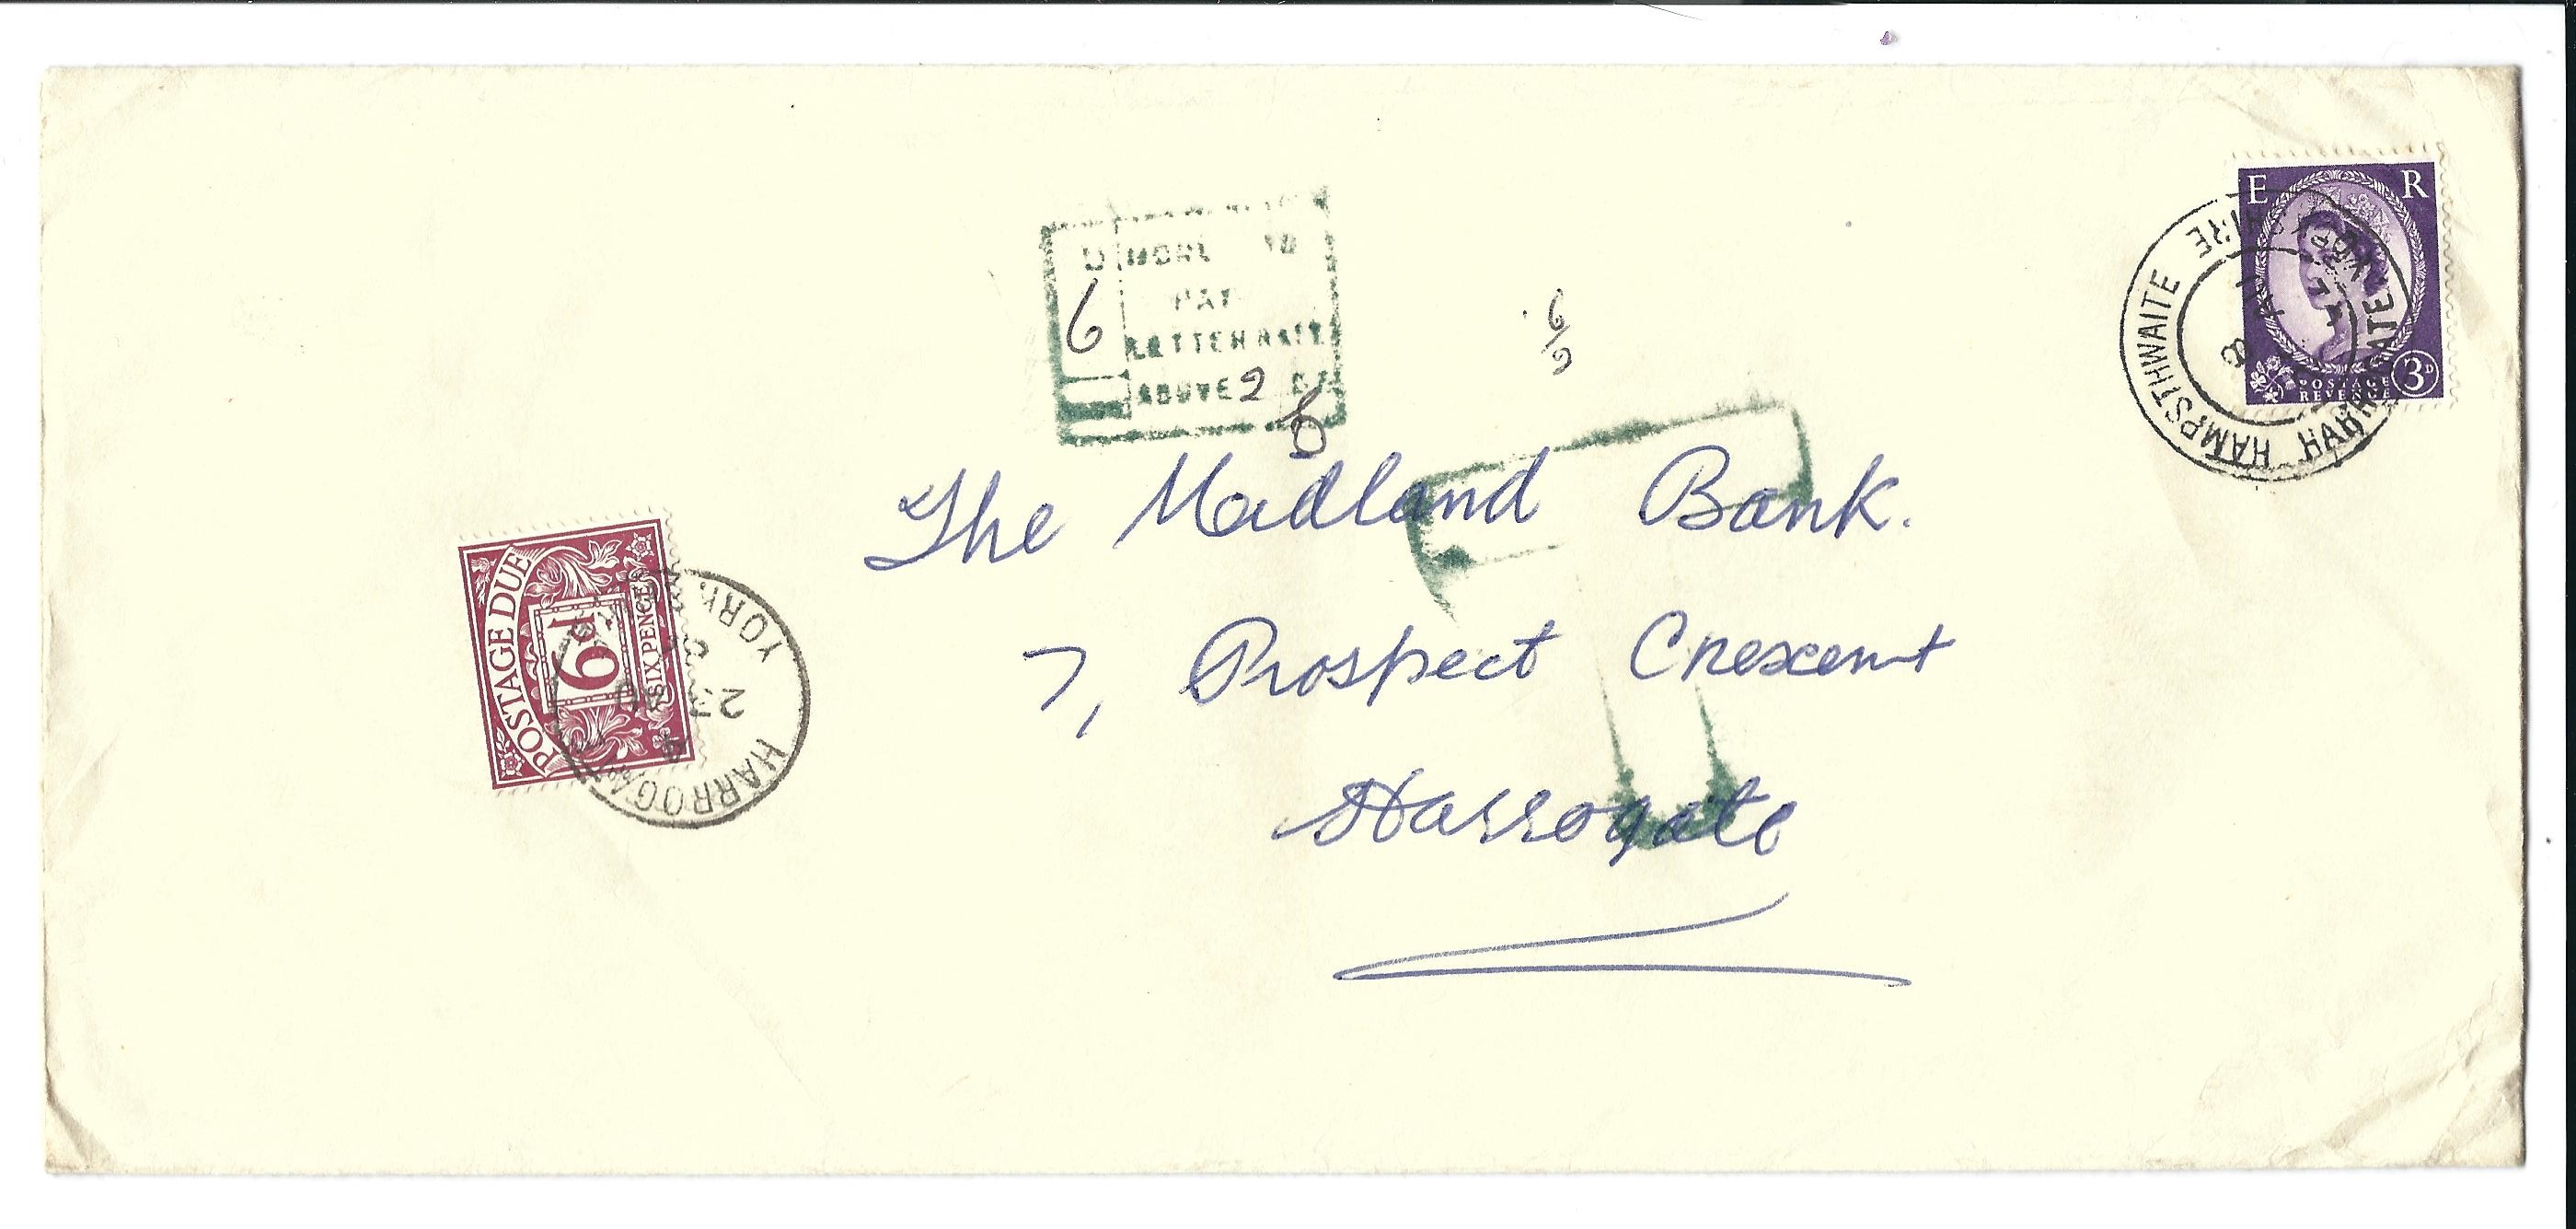 E R
POSTAGE
REVENUE
3D
HAMPSTHWAITE
HARROGATE
YORKSHIRE
MORE TO
PAY
LETTER RATE
6
ABOVE 2
6
The Midland Bank.
7, Prospect Crescent
Harrogate
POSTAGE DUE
6d
SIX PENCE
HARROGATE
YORK
23